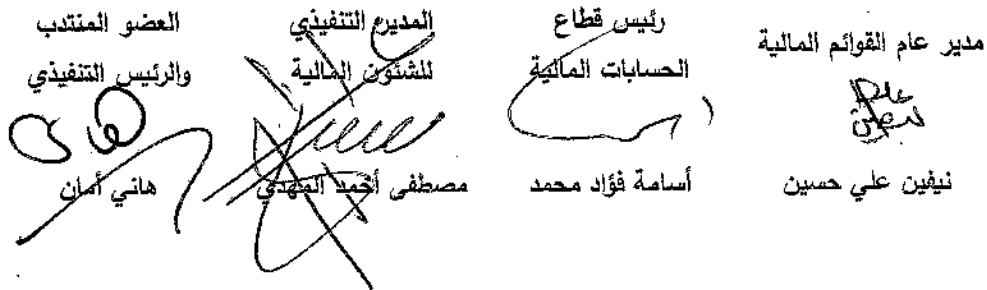 مدير عام القوائم المالية
نيفين علي حسين
رئيس قطاع
الحسابات المالية
أسامة فؤاد محمد
المدير التنفيذي
للشئون المالية
مصطفى أحمد المهدي
العضو المنتدب
والرئيس التنفيذي
هاني أمان